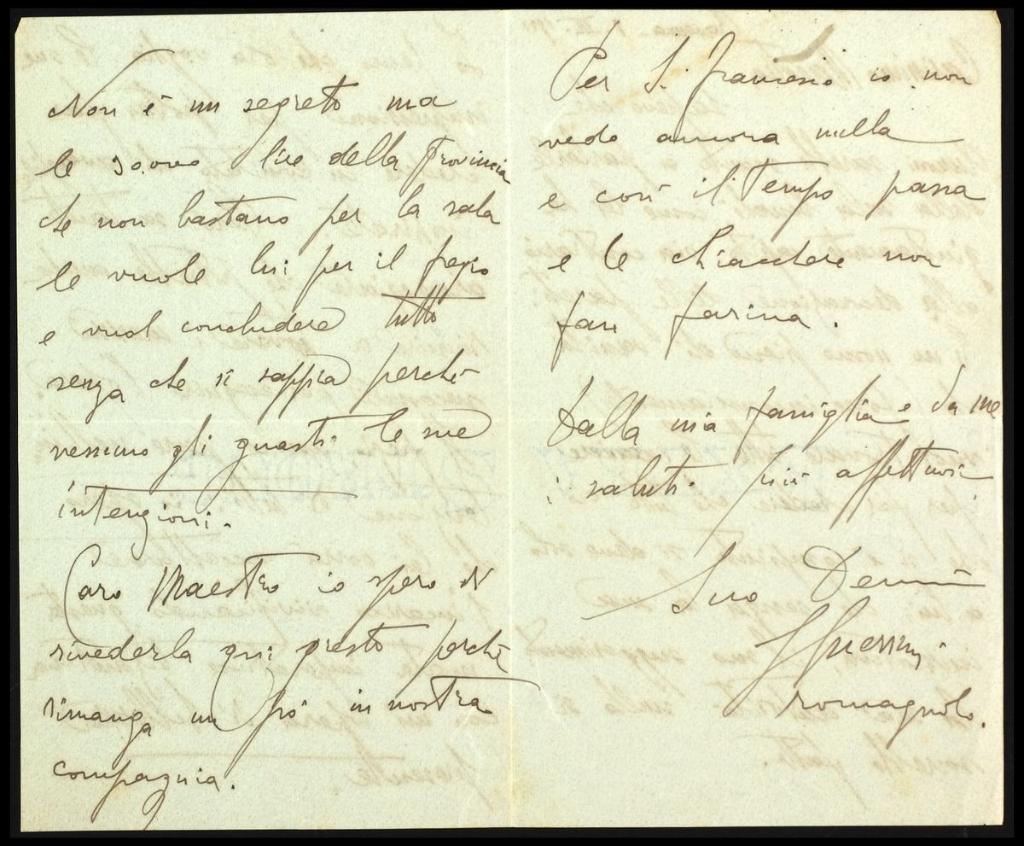 Non è un segreto ma
le 30.000 lire della Provincia
che non bastano per la sala
le vuole lui per il fregio
e vuol concludere tutto
senza che si sappia perchè
nessuno gli guasti le sue
intenzioni.
Caro Maestro io spero di
rivederla qui presto perchè
rimanga un pò in nostra
compagnia.
Per S. Francesco io non
vedo ancora nulla
e così il Tempo passa
e le chiacchere non
fan farina.
Dalla mia famiglia e da me
i saluti più affettuosi
Suo
romagnolo.